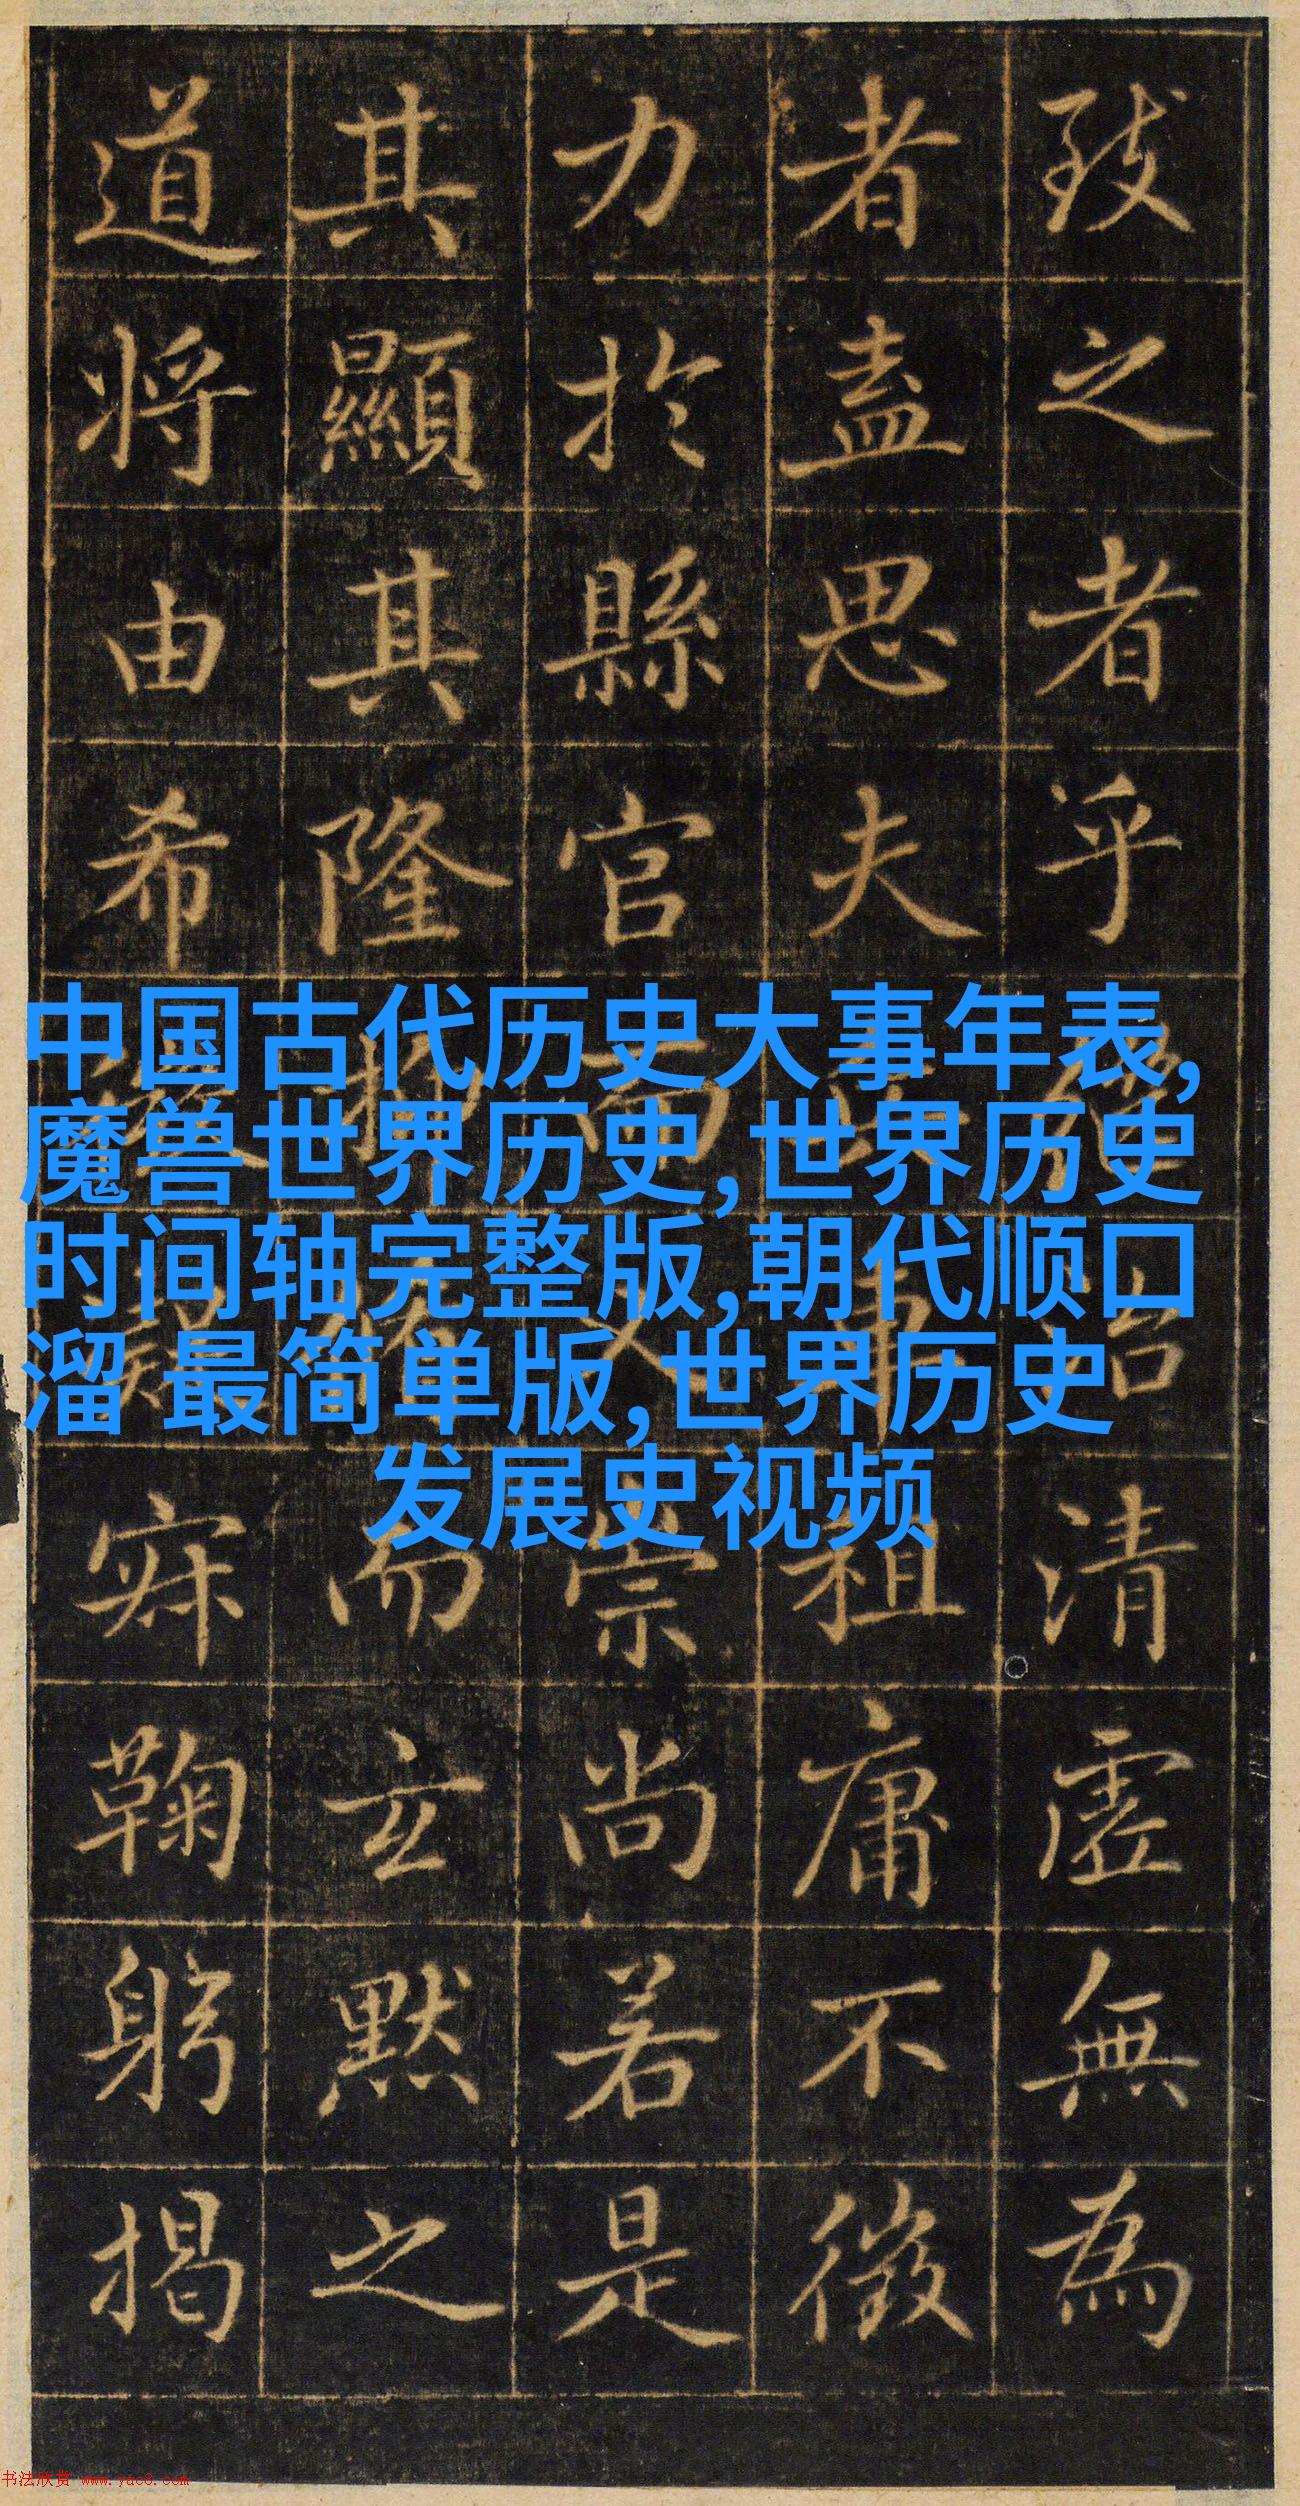 致之者乎治清虛無為
者盖思夫祖庸不徵
力於縣官而崇尚若是
其顯其隆而玄默之
道将由希鞠躬揭
中国古代历史大事年表,
魔兽世界历史,世界历史
时间轴完整版,朝代顺口
溜 最简单版,世界历史
发展史视频
书法欣赏 www.yac8.com